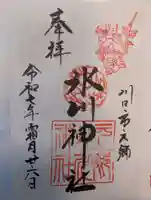 奉拝
川口市天領
氷川神社
令和七年霜月廿六日